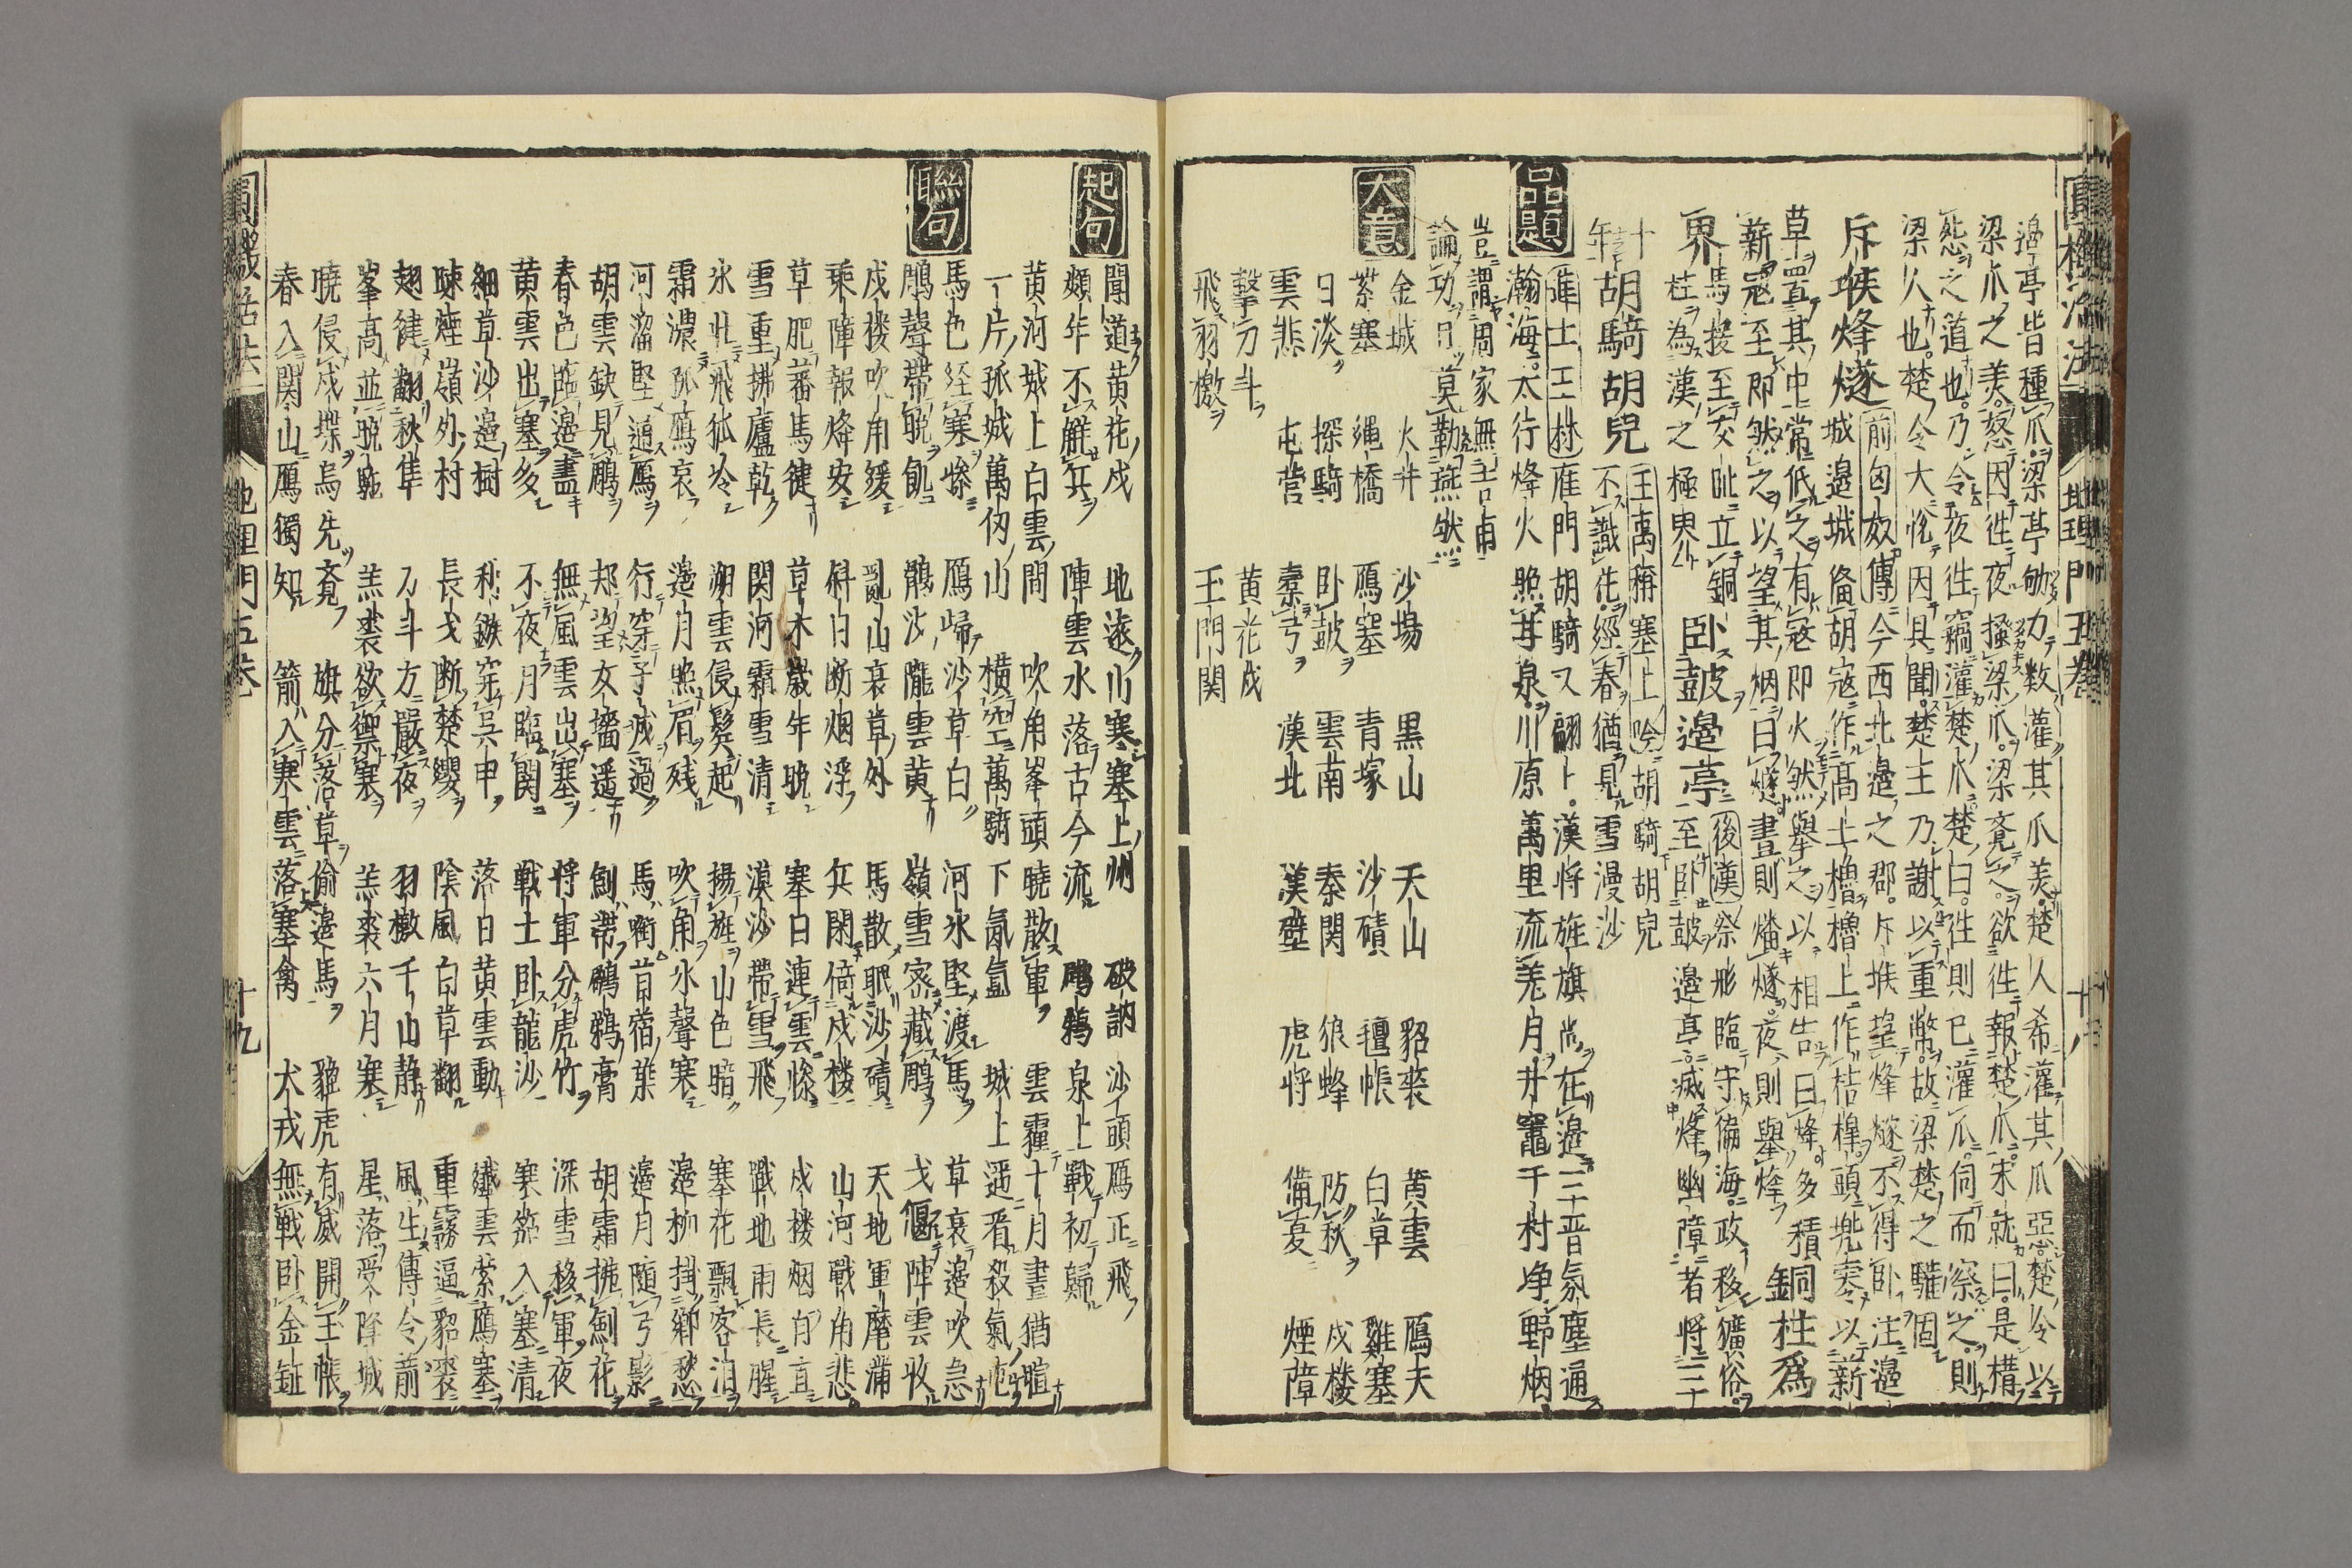 圓機活法 地理門五巻 十八
邊亭皆種瓜梁亭劬力数灌其瓜美楚人希灌其瓜惡楚令以
梁瓜之美怒因徃夜搔梁瓜梁覺之欲徃報楚瓜宋就曰是構
怨之道也乃令夜徃竊灌楚瓜楚曰徃則已灌瓜伺而察之則
梁人也楚令大悦因具聞楚王乃謝以重幣故梁楚之驩固
斥堠烽燧 前匈奴傳 今西北邊之郡斥堠望烽燧不得卧注邊
城邊城俻胡寇作高土櫓櫓上作桔橰頭兜零以新
草置其中常低之有寇即火然舉之以相告曰烽多積
薪寇至即然之以望其烟曰燧晝則燔燧夜則舉烽 銅柱爲
界 馬援至交趾立銅柱為漢之極界 卧鼓邉葶 後漢 祭肜臨守偏海政移獷俗
至卧鼓邊亭滅烽幽障者将三十年
胡騎胡兒 王禹稱塞上吟 胡騎胡兒
不識花經春猶見雪漫沙
品題
薩士工林 雁門胡騎又翩卜漢将旌旗尚在邉三晋氛塵通
瀚海太行烽火照苷泉川原萬里流羌月井竈千村净野烟
豈謂周家無吉甫
論功日莫勒燕然
大意
金城 火井 沙場 黒山 天山 貂裘 黄雲 鴈夫
紫塞 縄橋 鴈塞 青塚 沙磧 氊帳 白草 雞塞
日淡 探騎 卧鼓 雲南 秦関 狼烽 防秋 戍楼
雲悲 屯营 櫜弓 漢北 漢壁 虎将 備夏 煙障
擊刁斗 黄花戍
飛羽檄 玉門関
起句
聞道黄花戍 地遠川寒塞上州 破訥沙頭雁正飛
頻年不解兵 陣雲水落古今流 鸊鵜泉上戰初歸
黄河城上白雲間 吹角峯頭曉散軍 雲霾十月晝猶暄
一片孤城萬仞山 横空萬騎下氤氳 城上遥看殺氣屯
聯句
馬色經寒慘 鴈歸沙草白 河氷堅渡馬 草衰邉吹急
鵰聲帶晩飢 鵲沙隴雲黄 嶺雪密藏鵰 戈偃陣雲收
戍楼吹角緩 亂山衰草外 馬散眠沙磧 天地軍麾蒲
乘障報烽安 斜日断烟浮 兵閑倚戍楼 山河戰角悲
草肥蕃馬健 草木歳年晩 塞日連雲惨 戍楼烟自直
雪重拂廬乾 関河霜雪清 漠沙帶雪飛 戰地雨長腥
氷壮飛狐冷 朔雲侵鬂起 揚旌山色暗 塞花飄客泪
霜濃孤鴈哀 邉月照眉殘 吹角氷聲寒 邉柳挂郷愁
河溜堅通馬 行穿于滅過 馬銜苜宿葉 邉月随弓影
胡雲缺見鵰 却望女墻遥 劍帶鸊鵜膏 胡霜拂劍花
春色臨邉盡 無風雲出塞 将軍分虎竹 深雪移軍夜
黄雲出塞多 不夜月臨関 戰士卧龍沙 寒笳入塞清
細草沙邉樹 秋鏃穿呉甲 落日黄雲動 纎雲縈鴈塞
疎煙嶺外村 長戈断楚纓 陰風白草翻 重霧逼貂裘
翅健翻秋隼 刀斗方嚴夜 羽檄千山静 風生傳令箭
峯高並晩駞 羔裘欲禦寒 羔裘六月寒 星落受降城
曉侵戍堞烏先覺 旗分落草偷邉馬 貔虎有威開玉帳
春入関山鴈獨知 箭入寒雲落塞禽 犬戎無戰卧金鉦
圓機活法 地理門五巻 十九